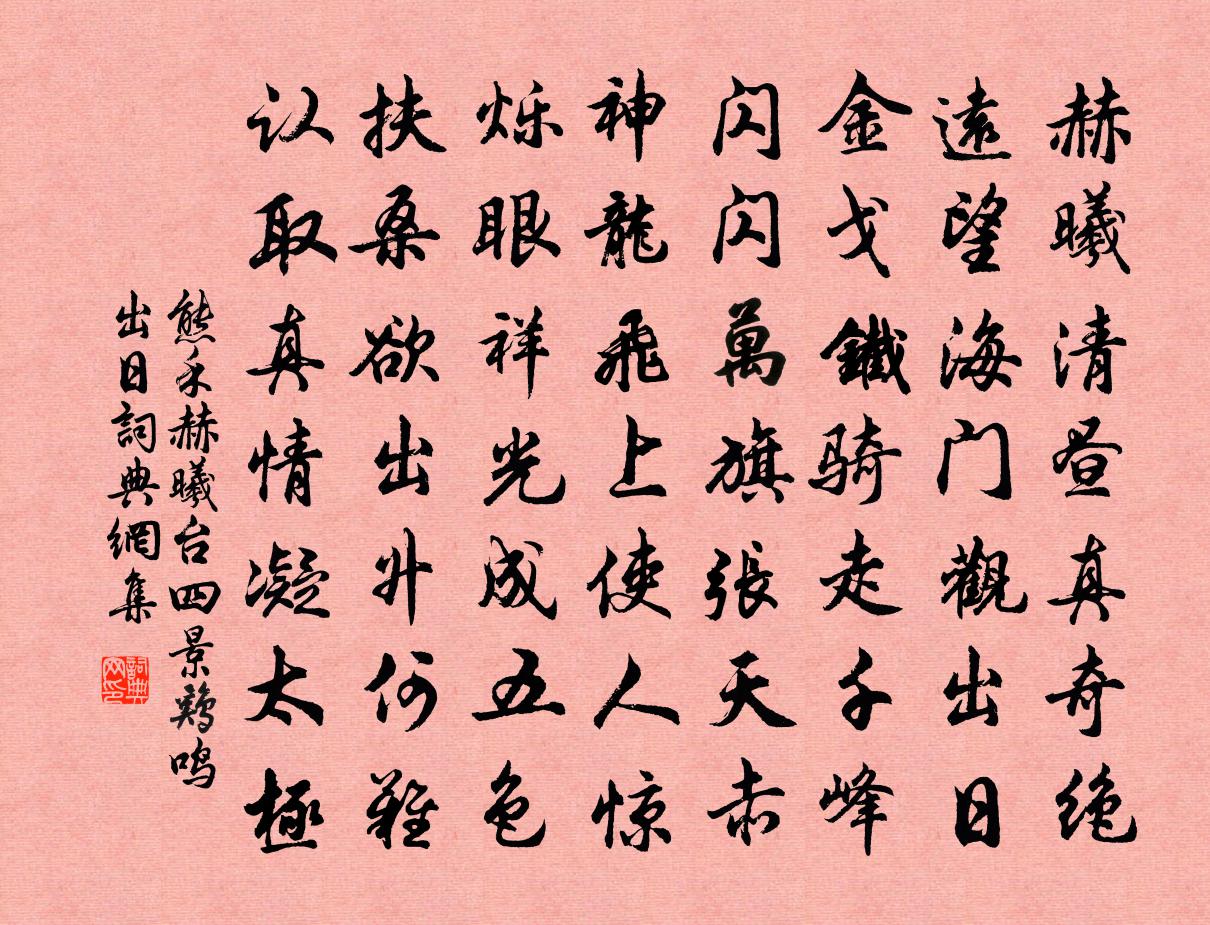 赫曦清昼真奇绝
遠望海门觀出日
金戈鐵骑走千峰
闪闪萬旗張天赤
神龍飛上使人惊
烁眼祥光成五色
扶桑欲出升何難
认取真情凝太極
熊禾赫曦台四景鷄鸣
出日詞典網集
詞典网印